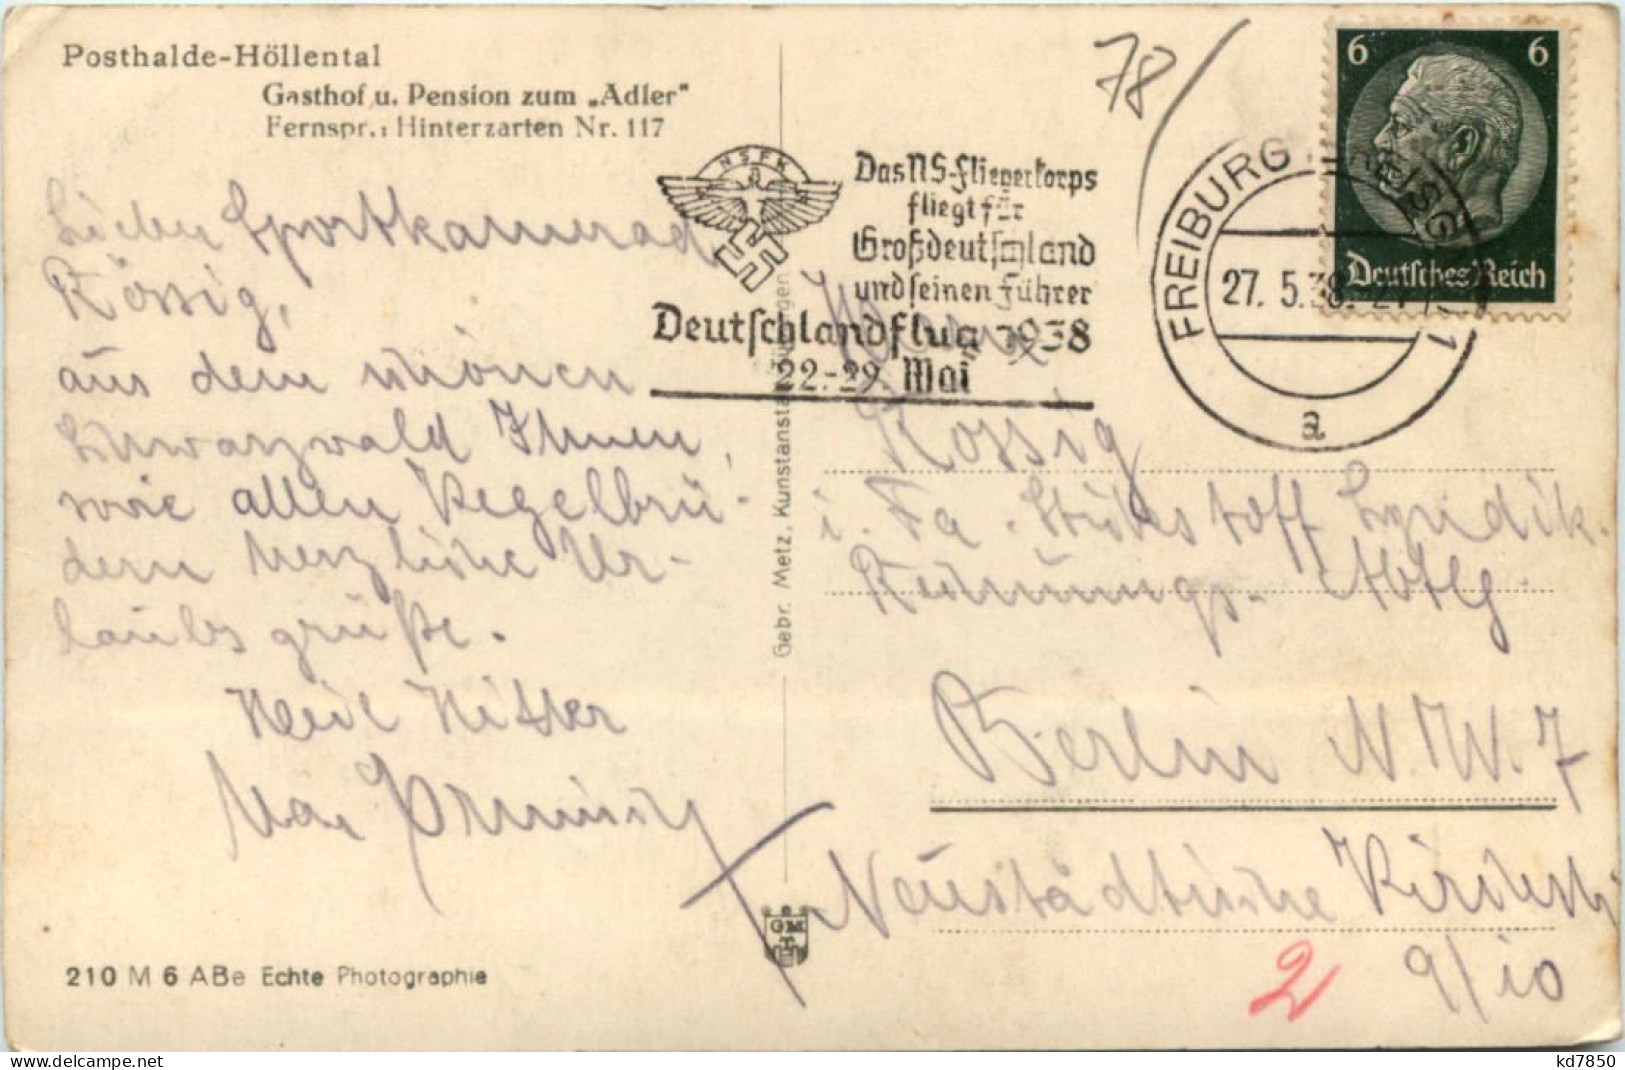 Posthalde-Höllental
Gasthof u. Pension zum „Adler"
Fernspr.: Hinterzarten Nr. 117
78
6 6
Deutsches Reich
NSFK
Das NS-Fliegerkorps
fliegt für
Großdeutschland
und seinen Führer
Deutschlandflug 1938
22.-29. Mai
FREIBURG BREISG 1
27. 5.38. 21
a
Lieber Sportkamerad
Rössig,
aus dem schönen
Schwarzwald Ihnen,
sowie allen Kegelbrü-
dern herzliche Ur-
laubsgrüße.
Heil Hitler
Rössig
i. Fa. Stickstoff Syndik.
Rechnungs-Abtlg
Berlin N.W.7
Neustädtische Kirchstr
9/10
2
Gebr. Metz, Kunstanstalt, Tübingen
GM
T
210 M 6 ABe Echte Photographie
delcampe.net
kd7850